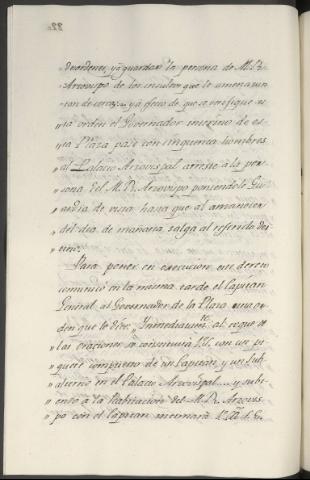 desordenes, y á guardar la persona de M.R.
Arzovispo de los insultos que le amenaza-
van de cerca... y á efecto de que se verifique es-
ta orden el Governador interino de es-
ta Plaza pase con cinquenta hombres
al Palacio Arzovispal arreste á la per-
sona del M.R. Arzovispo poniendole Gu-
ardia de vista hasta que al amanecer
del dia de mañana salga al referido des-
tino.
Para poner en execucion este decre
comunicó en la misma tarde el Capitan
General al Governador de la Plaza una or-
den que le dice: Inmediatam.te al toque de
las oraciones se constituirá V.S. con un pi-
quete compuesto de un Capitan y un Sub-
alterno en el Palacio Arzovispal.... y subi-
endo á la Habitacion del M.R. Arzovis-
po con el Capitan